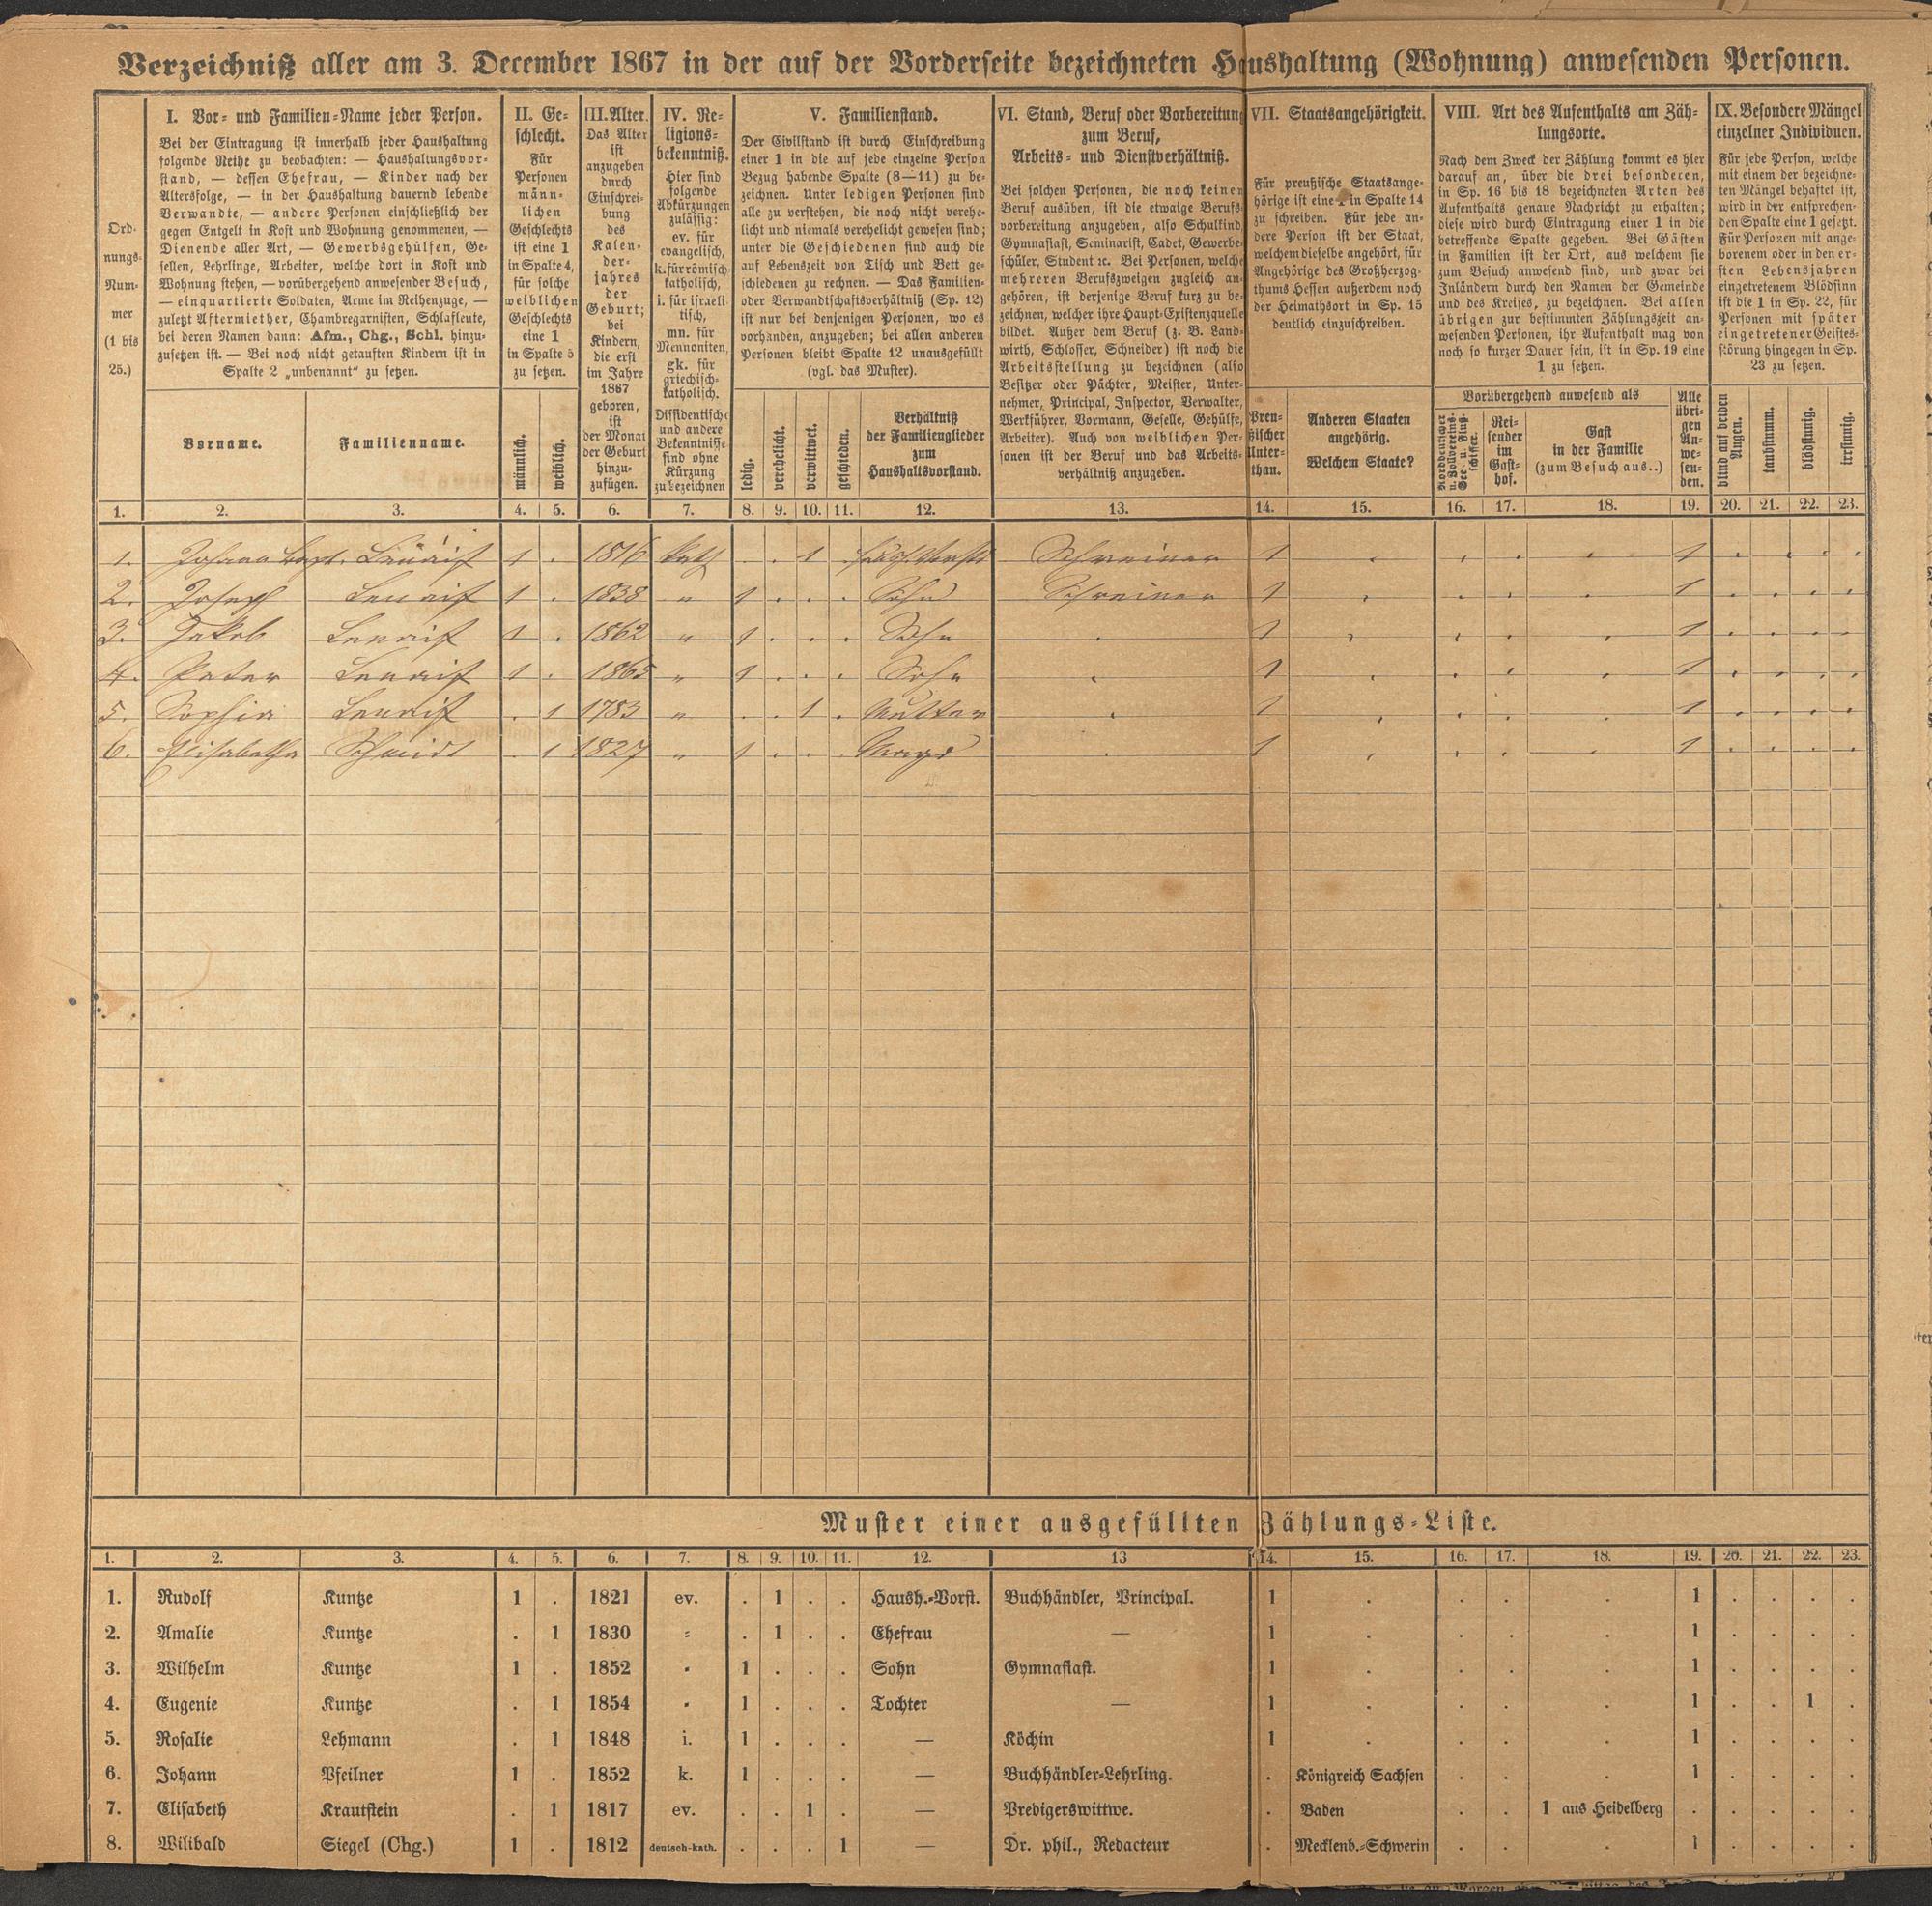 Verzeichniß aller am 3. December 1867 in der auf der Vorderseite bezeichneten Haushaltung (Wohnung) anwesenden Personen.
Ord-
nungs-
Num-
mer
(1 bis
25.)
I. Vor- und Familien-Name jeder Person.
Bei der Eintragung ist innerhalb jeder Haushaltung
folgende Reihe zu beobachten: — Haushaltungsvor-
stand, — dessen Ehefrau, — Kinder nach der
Altersfolge, — in der Haushaltung dauernd lebende
Verwandte, — andere Personen einschließlich der
gegen Entgelt in Kost und Wohnung genommenen, —
Dienende aller Art, — Gewerbsgehülfen, Ge-
sellen, Lehrlinge, Arbeiter, welche dort in Kost und
Wohnung stehen, — vorübergehend anwesender Besuch,
— einquartierte Soldaten, Arme im Reihenzuge, —
zuletzt Aftermiether, Chambregarnisten, Schlafleute,
bei deren Namen dann: Afm., Chg., Schl. hinzu-
zusetzen ist. — Bei noch nicht getauften Kindern ist in
Spalte 2 „unbenannt“ zu setzen.
Vorname.
Familienname.
II. Ge-
schlecht.
Für
Personen
männ-
lichen
Geschlechts
ist eine 1
in Spalte 4,
für solche
weiblichen
Geschlechts
eine 1
in Spalte 5
zu setzen.
männlich.
weiblich.
III. Alter.
Das Alter
ist
anzugeben
durch
Einschrei-
bung
des
Kalen-
der-
jahres
der
Geburt;
bei
Kindern,
die erst
im Jahre
1867
geboren,
ist
der Monat
der Geburt
hinzu-
zufügen.
IV. Re-
ligions-
bekenntniß.
Hier sind
folgende
Abkürzungen
zulässig:
ev. für
evangelisch,
k. für römisch-
katholisch,
i. für israeli-
tisch,
mn. für
Mennoniten,
gk. für
griechisch-
katholisch.
Dissidentische
und andere
Bekenntnisse
sind ohne
Kürzung
zu bezeichnen
V. Familienstand.
Der Civilstand ist durch Einschreibung
einer 1 in die auf jede einzelne Person
Bezug habende Spalte (8—11) zu be-
zeichnen. Unter ledigen Personen sind
alle zu verstehen, die noch nicht verehe-
licht und niemals verehelicht gewesen sind;
unter die Geschiedenen sind auch die
auf Lebenszeit von Tisch und Bett ge-
schiedenen zu rechnen. — Das Familien-
oder Verwandtschaftsverhältniß (Sp. 12)
ist nur bei denjenigen Personen, wo es
vorhanden, anzugeben; bei allen anderen
Personen bleibt Spalte 12 unausgefüllt
(vgl. das Muster).
ledig.
verehelicht.
verwittwet.
geschieden.
Verhältniß
der Familienglieder
zum
Haushaltsvorstand.
VI. Stand, Beruf oder Vorbereitung
zum Beruf,
Arbeits- und Dienstverhältniß.
Bei solchen Personen, die noch keinen
Beruf ausüben, ist die etwaige Berufs-
vorbereitung anzugeben, also Schulkind,
Gymnasiast, Seminarist, Cadet, Gewerbe-
schüler, Student ꝛc. Bei Personen, welche
mehreren Berufszweigen zugleich an-
gehören, ist derjenige Beruf kurz zu be-
zeichnen, welcher ihre Haupt-Existenzquelle
bildet. Außer dem Beruf (z. B. Land-
wirth, Schlosser, Schneider) ist noch die
Arbeitsstellung zu bezeichnen (also
Besitzer oder Pächter, Meister, Unter-
nehmer, Principal, Inspector, Verwalter,
Werkführer, Vormann, Geselle, Gehülfe,
Arbeiter). Auch von weiblichen Per-
sonen ist der Beruf und das Arbeits-
verhältniß anzugeben.
VII. Staatsangehörigkeit.
Für preußische Staatsange-
hörige ist eine 1 in Spalte 14
zu schreiben. Für jede an-
dere Person ist der Staat,
welchem dieselbe angehört, für
Angehörige des Großherzog-
thums Hessen außerdem noch
der Heimathsort in Sp. 15
deutlich einzuschreiben.
Preu-
ßischer
Unter-
than.
Anderen Staaten
angehörig.
Welchem Staate?
VIII. Art des Aufenthalts am Zäh-
lungsorte.
Nach dem Zweck der Zählung kommt es hier
darauf an, über die drei besonderen,
in Sp. 16 bis 18 bezeichneten Arten des
Aufenthalts genaue Nachricht zu erhalten;
diese wird durch Eintragung einer 1 in die
betreffende Spalte gegeben. Bei Gästen
in Familien ist der Ort, aus welchem sie
zum Besuch anwesend sind, und zwar bei
Inländern durch den Namen der Gemeinde
und des Kreises, zu bezeichnen. Bei allen
übrigen zur bestimmten Zählungszeit an-
wesenden Personen, ihr Aufenthalt mag von
noch so kurzer Dauer sein, ist in Sp. 19 eine
1 zu setzen.
Vorübergehend anwesend als
Norddeutscher
u. Zollvereins-
See- u. Fluß-
schiffer.
Rei-
sender
im
Gast-
hof.
Gast
in der Familie
(zum Besuch aus..)
Alle
übri-
gen
An-
we-
sen-
den.
IX. Besondere Mängel
einzelner Individuen.
Für jede Person, welche
mit einem der bezeichne-
ten Mängel behaftet ist,
wird in der entsprechen-
den Spalte eine 1 gesetzt.
Für Personen mit ange-
borenem oder in den er-
sten Lebensjahren
eingetretenem Blödsinn
ist die 1 in Sp. 22, für
Personen mit später
eingetretener Geistes-
störung hingegen in Sp.
23 zu setzen.
blind auf beiden
Augen.
taubstumm.
blödsinnig.
irrsinnig.
1. 2. 3. 4. 5. 6. 7. 8. 9. 10. 11. 12. 13. 14. 15. 16. 17. 18. 19. 20. 21. 22. 23.
1. Johann 1 . 1816 kath . . 1 Schreiner 1 . . . . 1 . . . .
2. Joseph 1 . 1838 " 1 . . . Sohn Schreiner 1 . . . . 1 . . . .
3. Jakob 1 . 1862 " 1 . . . Sohn . 1 . . . . 1 . . . .
4. Peter 1 . 1865 " 1 . . . Sohn . 1 . . . . 1 . . . .
5. Sophia . 1 1783 " . . 1 . Mutter . 1 . . . . 1 . . . .
6. Elisabetha Schmidt . 1 1827 " 1 . . . Magd . 1 . . . . 1 . . . .
Muster einer ausgefüllten Zählungs-Liste.
1. 2. 3. 4. 5. 6. 7. 8. 9. 10. 11. 12. 13 14. 15. 16. 17. 18. 19. 20. 21. 22. 23.
1. Rudolf Kuntze 1 . 1821 ev. . 1 . . Haush.-Vorst. Buchhändler, Principal. 1 . . . . 1 . . . .
2. Amalie Kuntze . 1 1830 " . 1 . . Ehefrau — 1 . . . . 1 . . . .
3. Wilhelm Kuntze 1 . 1852 " 1 . . . Sohn Gymnasiast. 1 . . . . 1 . . . .
4. Eugenie Kuntze . 1 1854 " 1 . . . Tochter — 1 . . . . 1 . . 1 .
5. Rosalie Lehmann . 1 1848 i. 1 . . . — Köchin 1 . . . . 1 . . . .
6. Johann Pfeilner 1 . 1852 k. 1 . . . — Buchhändler-Lehrling. . Königreich Sachsen . . . 1 . . . .
7. Elisabeth Krautstein . 1 1817 ev. . . 1 . — Predigerswittwe. . Baden . . 1 aus Heidelberg . . . . .
8. Wilibald Siegel (Chg.) 1 . 1812 deutsch-kath. . . . 1 — Dr. phil., Redacteur . Mecklenb.-Schwerin . . . 1 . . . .